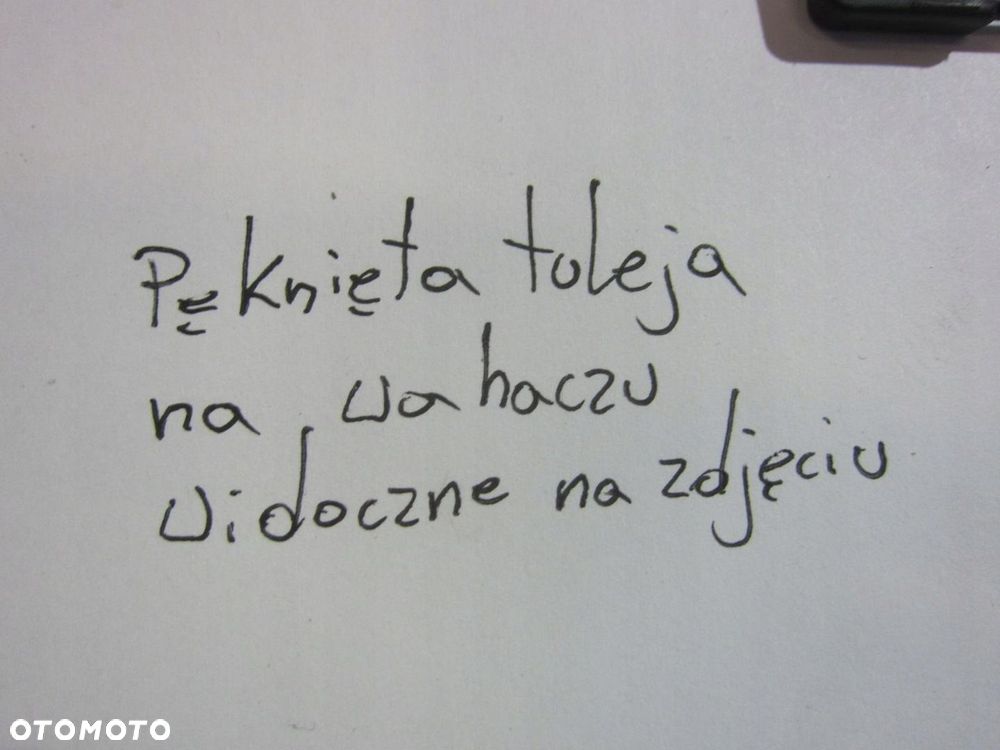 Pęknięta tuleja
na wahaczu
widoczne na zdjęciu
OTOMOTO